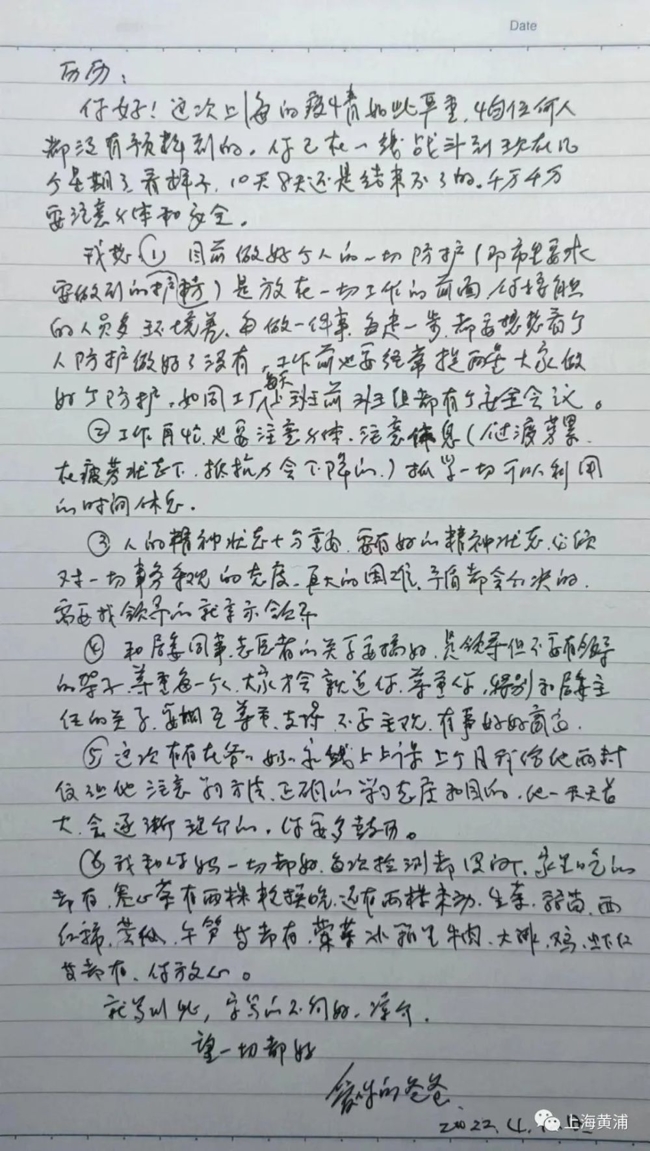 Date
历历：
你好！这次上海的疫情如此严重，任何人
都没有预料到的。你已在一线战斗到现在几
个星期了，看样子，10天8天还是结束不了的。千万千万
要注意身体和安全。
我想① 目前做好个人的一切防护（即
要做到的）是放在一切工作的前面，你接触
的人员多环境差，每做一件事，每走一步，都要想想看个
人防护做好了没有，工作前也要经常提醒大家做
好个防护，如同工厂每天上班前班组都有个安全会议。
②工作再忙，也要注意身体、注意休息（过渡劳累
在疲劳状态下，抵抗力会下降的）抓紧一切可以利用
的时间休息。
③人的精神状态十分重要，要有好的精神状态，必须
对一切事务乐观的态度，再大的困难、矛盾都会解决的，
需要找领导的就请示领导
④和居委同事、志愿者的关系要搞好，是领导但不要有领导
的架子，尊重每一个人，大家才会靠近你，尊重你，特别和居委主
任的关系，要相互尊重、支持，不要主观，有事好好商量。
⑤这次在爷奶家线上上课，上个月我给他两封
信让他注意学习方法，正确的学习态度和目的，他一天天长
大，会逐渐理解的，你要多鼓励。
⑥我和你妈一切都好，每次检测都没问题，家里吃的
都有，卷心菜有两棵，还有两棵未动，生菜、西
红柿、黄瓜、牛笋等都有，荤菜冰箱里牛肉、大排、鸡、虾仁
等都有，你放心。
就写到此，字写的不何好，谅介。
望一切都好
爱你的爸爸
2022.4.
上海黄浦